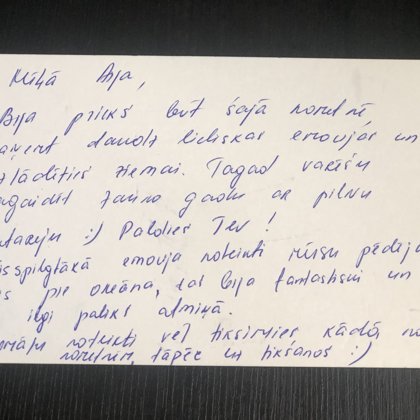 Mīļā Aija,
Bija prieks būt šajā nometnē,
saņemt daudz lieliskas emocijas un
izlādēties ziemai. Tagad varēšu
sagaidīt jauno gadu ar pilnu
:) Paldies Tev!
Visspilgtākā emocija noteikti mūsu pēdējā
pie okeāna, tas bija fantastiski un
ilgi paliks atmiņā.
noteikti vēl tiksimies kādā no
nometnēm, tāpēc uz tikšanos :)